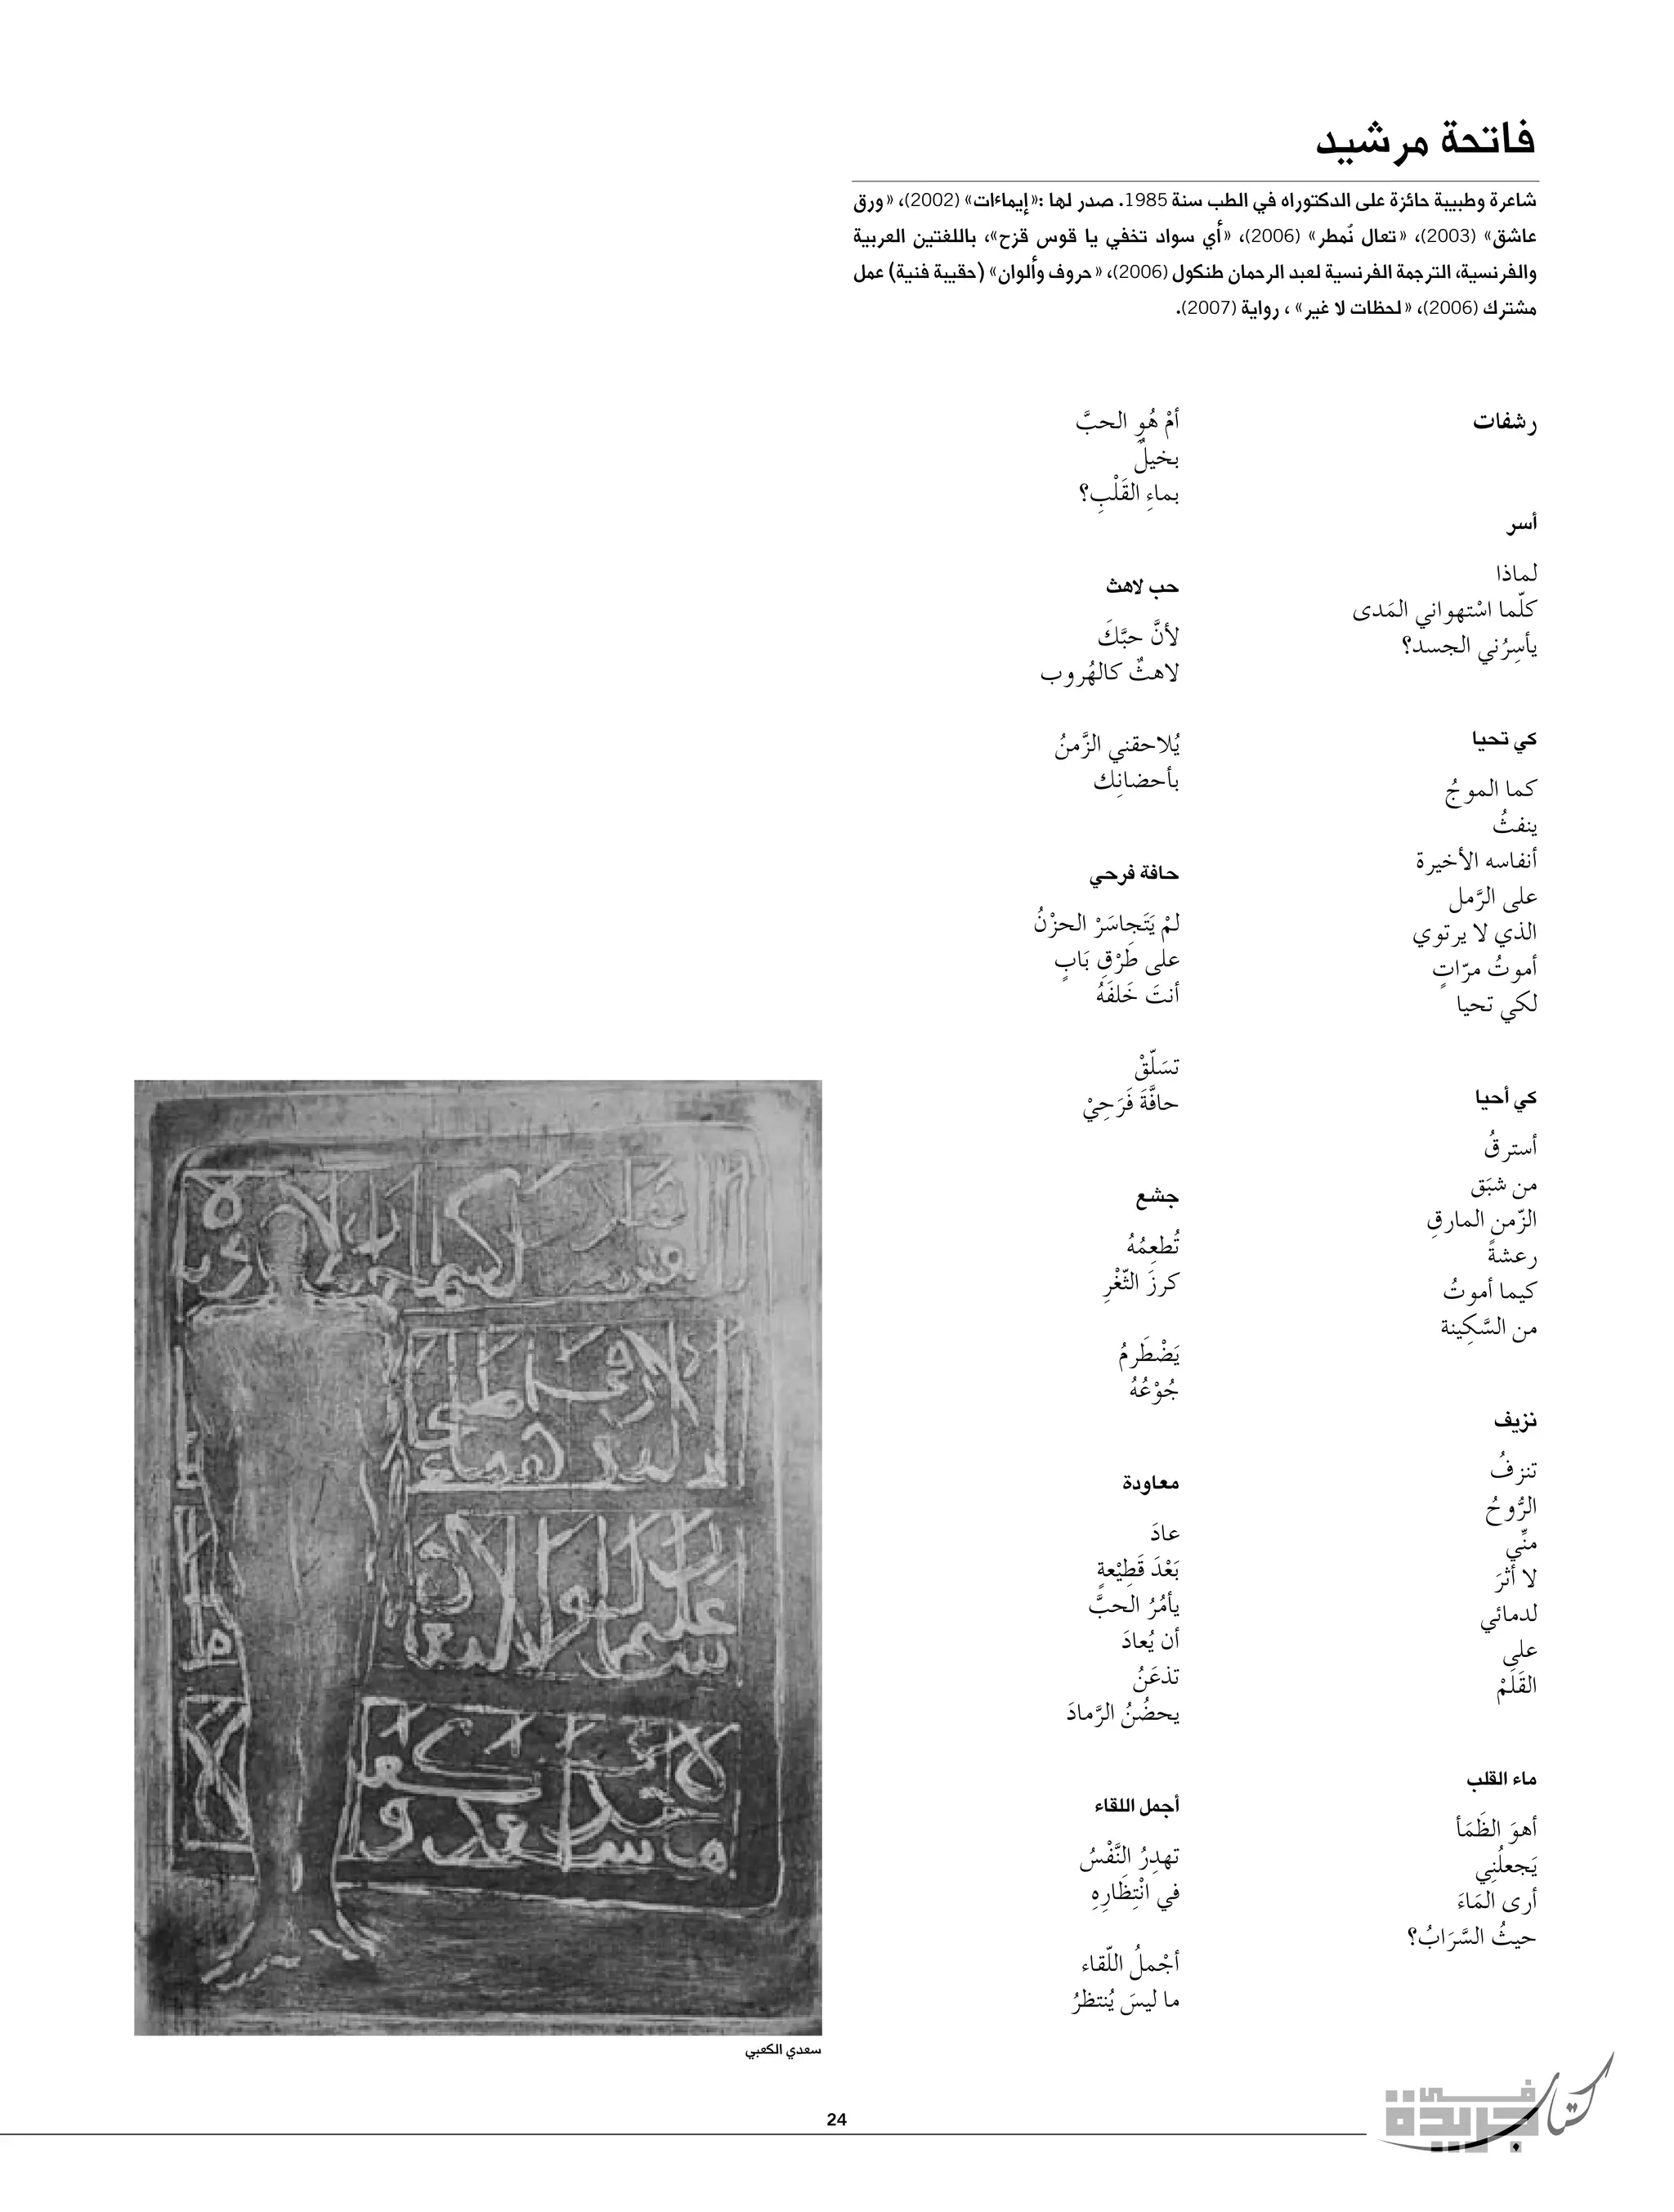 فاتحة مرشيد
شاعرة وطبيبة حائزة على الدكتوراه في الطب سنة 1985. صدر لها :«إيماءات» (2002)، «ورق
عاشق» (2003)، «تعال نُمطر» (2006)، «أي سواد تخفي يا قوس قزح»، باللغتين العربية
والفرنسية، الترجمة الفرنسية لعبد الرحمان طنكول (2006)، «حروف وألوان» (حقيبة فنية) عمل
مشترك (2006)، «لحظات لا غير» ، رواية (2007).
رشفات
أسر
لماذا
كلّما اسْتهواني المَدى
يأسِرُني الجسد؟
كي تحيا
كما الموجُ
ينفثُ
أنفاسه الأخيرة
على الرَّمل
الذي لا يرتوي
أموتُ مرّاتٍ
لكي تحيا
كي أحيا
أسترقُ
من شبَق
الزّمن المارقِ
رعشةً
كيما أموتُ
من السَّكِينة
نزيف
تنزفُ
الرُّوحُ
منِّي
لا أثرَ
لدمائي
على
القَلَمْ
ماء القلب
أهوَ الظَمَأ
يَجعلُنِي
أرى المَاءَ
حيثُ السَّرَابُ؟
أمْ هُو الحبَّ
بخيلٌ
بماءِ القَلْبِ؟
حب لاهث
لأنَّ حبَّكَ
لاهثٌ كالهُروب
يُلاحقني الزَّمنُ
بأحضانِك
حافة فرحي
لمْ يَتَجاسَرْ الحزْنُ
على طَرْقِ بَابٍ
أنتَ خَلفَهُ
تسَلّقْ
حافَّةَ فَرَحِيْ
جشع
تُطعِمُهُ
كرزَ الثّغْرِ
يَضْطَرمُ
جُوْعُهُ
معاودة
عادَ
بَعْدَ قَطِيْعةٍ
يأمُرُ الحبَّ
أن يُعادَ
تذعَنُ
يحضُنُ الرَّمادَ
أجمل اللقاء
تهدِرُ النَّفْسُ
في انْتِظَارِهِ
أجْملُ اللّقاء
ما ليسَ يُنتظرُ
سعدي الكعبي
24
كتاب في جريدة